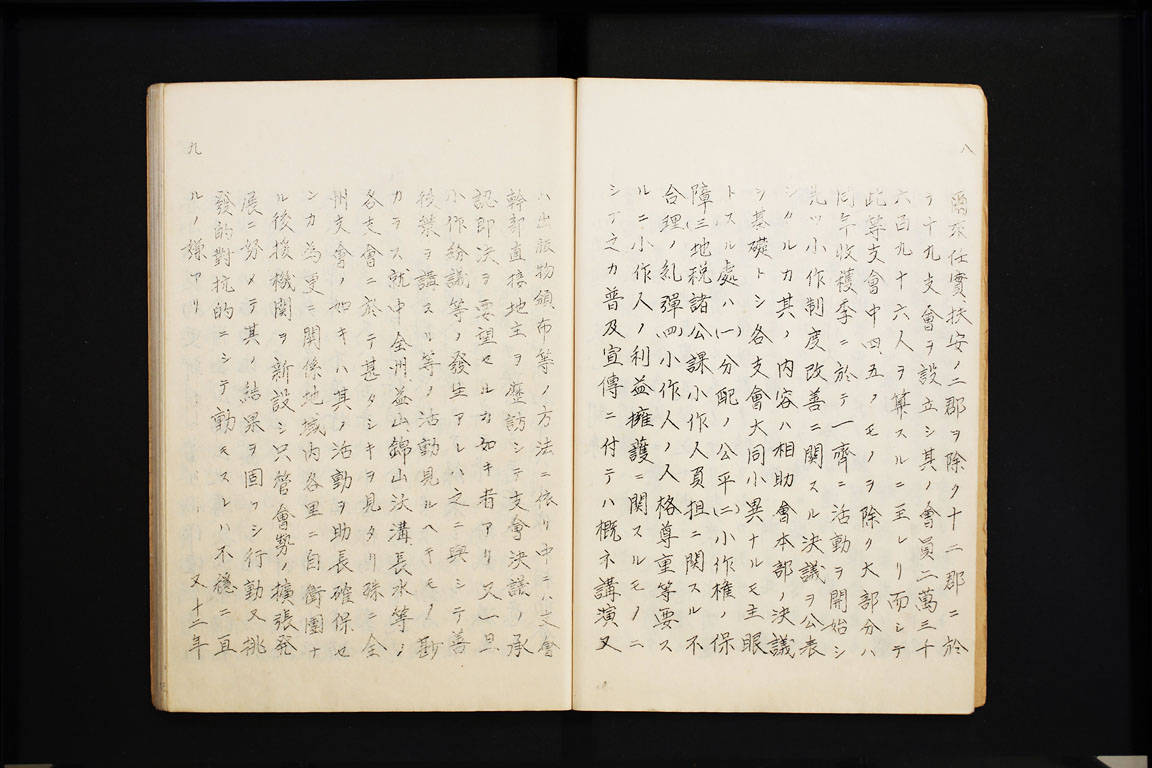 八
爾來任實扶安ノ二郡ヲ除ク十二郡ニ於
テ十九支會ヲ設立シ其ノ會員二萬三千
六百九十六人ヲ算スルニ至レリ而シテ
此等支會中四、五ノモノヲ除ク大部分ハ
同年收穫季ニ於テ一齊ニ活動ヲ開始シ
先ツ小作制度改善ニ關スル決議ヲ公表
シタルカ其ノ內容ハ相助會本部ノ決議
ヲ基礎トシ各支會大同小異ナルモ主眼
トスル處ハ(一)分配ノ公平(二)小作權ノ保
障(三)地稅諸公課小作人負担ニ關スル不
合理ノ糺彈(四)小作人ノ人格尊重等要ス
ルニ小作人ノ利益擁護ニ關スルモノニ
シテ之カ普及宣傳ニ付テハ概ネ講演又
九
ハ出版物頒布等ノ方法ニ依リ中ニハ支會
幹部直接地主ヲ歷訪シテ支會決議ノ承
認卽決ヲ要望セルカ如キ者アリ又一旦
小作紛議等ノ發生アレハ之ニ與シテ善
後策ヲ講スル等ノ活動見ルヘキモノ尠
カラス就中全州、益山、錦山、沃溝、長水等ノ
各支會ニ於テ甚タシキヲ見タリ殊ニ全
州支會ノ如キハ其ノ活動ヲ助長確保セ
ンカ為更ニ關係地域內各里ニ自衛團ナ
ル後援機關ヲ新設シ只管會勢ノ擴張發
展ニ努メテ其ノ結果ヲ固フシ行動又挑
發的對抗的ニシテ動モスレハ不穩ニ亘
ルノ嫌アリ 又十三年